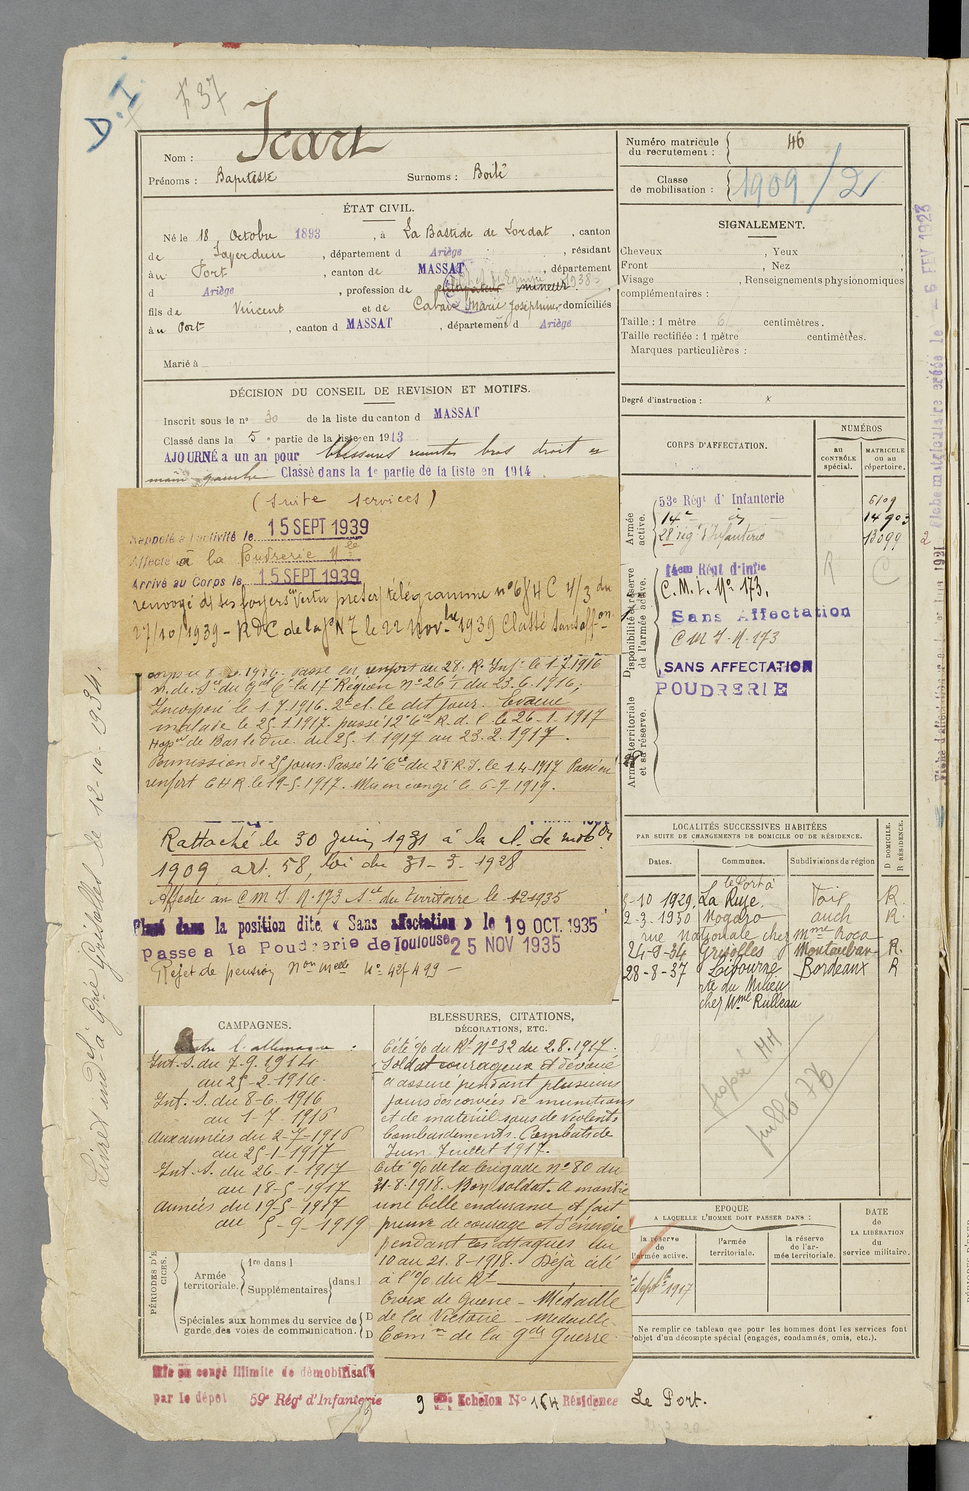 D.I
F 37
Nom : Icart
Prénoms : Baptiste Surnoms : Boité
Numéro matricule du recrutement : 46
Classe de mobilisation : 1909/2
ÉTAT CIVIL.
Né le 18 Octobre 1893, à La Bastide de Lordat, canton
de Saverdun, département d Ariège, résidant
à u Port, canton de MASSAT, département
d Ariège, profession de mineur.
fils de Vincent et de Marie Joséphine domiciliés
à u Port, canton d MASSAT, département d Ariège
Marié à
DÉCISION DU CONSEIL DE REVISION ET MOTIFS.
Inscrit sous le no 30 de la liste du canton d MASSAT
Classé dans la 5e partie de la liste en 1913
AJOURNÉ a un an pour blessures bras droit
main gauche Classé dans la 1e partie de la liste en 1914
(Suite services)
Rappelé à l'activité le 15 SEPT 1939
Affecté à la Poudrerie Nle
Arrivé au Corps le 15 SEPT 1939
renvoyé ds ses foyers en vertu prescr. télégramme no 6/4 C 4/3 du
27/10/1939 - RdC de la Pie N T le 22 Novbre 1939 Classé Sans affon.
passé en renfort du 28e R. Inf. le 1.7.1916
n. de Sce du Gal Ct la 17e Région No 26 I du 23.6.1916,
Incorporé le 1.7.1916. 2e cl. le dit jour. Evacué
malade le 25.1.1917. passé 12e Cie R.d.C. le 26-1.1917
Hopal de Bar le Duc du 25.1.1917 au 23.2.1917.
Permission de 25 jours. Passé 4e Cie du 28e R.I. le 1.4.1917 Passé en
renfort CHR le 19-5-1917. Mis en congé le 6-9-1919.
Rattaché le 30 Juin 1931 à la cl. de mobon
1909, art. 58, loi du 31-3-1928
Affecté au CMI N.173 Sce du Territoire le 1935
Placé dans la position dite « Sans affectation » le 19 OCT. 1935
Passé a la Poudrerie de Toulouse 25 NOV 1935
Rejet de pension Non melle No 42/499 -
CAMPAGNES.
Contre l'allemagne :
Int. S. du 7-9-1914
au 25-2-1916.
Int. S. du 8-6-1916
au 1-7-1916
aux armées du 2-7-1916
au 25-1-1917
Int. S. du 26-1-1917
au 18-5-1917
armées du 19-5-1917
au 5-9-1919
PÉRIODES D'EXERCICES.
Armée territoriale.
1re dans l
Supplémentaires
dans l
Spéciales aux hommes du service de
garde des voies de communication.
BLESSURES, CITATIONS,
DÉCORATIONS, ETC.
Cité % du Rt No 32 du 2.8.1917.
Soldat courageux et dévoué
a assuré pendant plusieurs
jours des corvées de munitions
et de matériel sous de violents
bombardements. Combats de
Juin Juillet 1917.
Cité % de la Brigade no 80 du
31-8-1918. Bon soldat. A montré
une belle endurance et fait
preuve de courage et d'énergie
pendant les attaques du
10 au 21.8-1918. Déjà cité
à l'% du Rt
Croix de Guerre - Médaille
de la Victoire - Médaille
Comve de la Gde Guerre.
SIGNALEMENT.
Cheveux , Yeux
Front , Nez
Visage , Renseignements physionomiques
complémentaires :
Taille : 1 mètre 6 centimètres.
Taille rectifiée : 1 mètre centimètres.
Marques particulières :
Degré d'instruction : x
CORPS D'AFFECTATION.
NUMÉROS
AU CONTRÔLE spécial.
MATRICULE OU AU répertoire.
Armée active.
53e Régt d'Infanterie 5109
14e d° 14903
28 régt d'Infanterie 13099
Disponibilité et réserve de l'armée active.
14em Régt d'Infie R C
C.M.I. No 173.
Sans Affectation
CMI N.173
SANS AFFECTATION
POUDRERIE
Armée territoriale et sa réserve.
LOCALITÉS SUCCESSIVES HABITÉES
PAR SUITE DE CHANGEMENTS DE DOMICILE OU DE RÉSIDENCE.
Dates. Communes. Subdivisions de région
D DOMICILE.
R RÉSIDENCE.
le Port à
8-10 1929 La Ruse. Foix R.
2-3-1930 Nogaro auch R.
rue Nationale chez Mme Roca
24-9-34 Grisolles Montauban R.
28-8-37 Libourne Bordeaux R
rte du Milieu
chez Mme Rulleau
proposé
feuillet 776
ÉPOQUE
A LAQUELLE L'HOMME DOIT PASSER DANS :
la réserve de l'armée active.
l'armée territoriale.
la réserve de l'armée territoriale.
DATE de LA LIBÉRATION du service militaire.
Septbre 1917
Ne remplir ce tableau que pour les hommes dont les services font
l'objet d'un décompte spécial (engagés, condamnés, omis, etc.).
Mis en congé illimité de démobilisat
par le dépôt 59e Régt d'Infanterie 9 Echelon No 164 Résidence Le Port.
Livret indel à gerie Grisolles le 12-10-1934.
Fiche matriculaire créée le - 6 FEV 1923